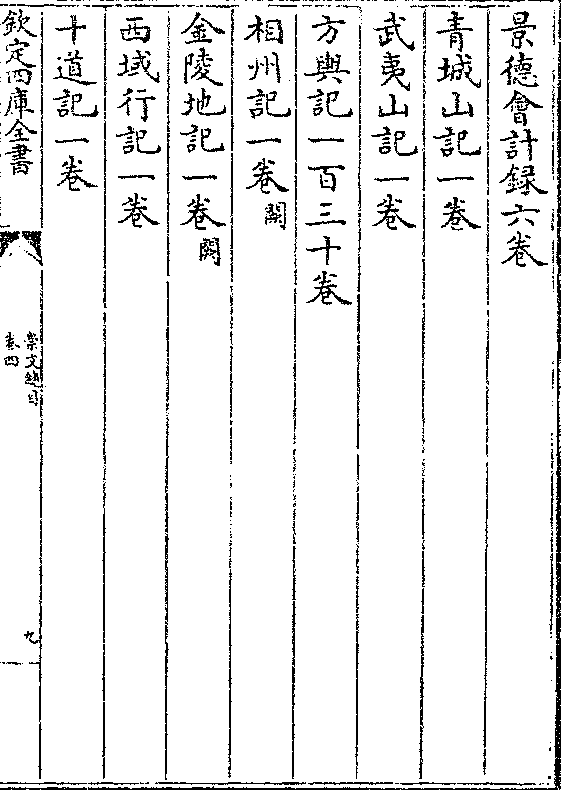 景德會計録六卷
青城山記一卷
武夷山記一卷
方輿記一百三十卷
相州記一卷闕
金陵地記一卷闕
西域行記一卷
十道記一卷
欽定四庫全書
崇文總目
卷四
九